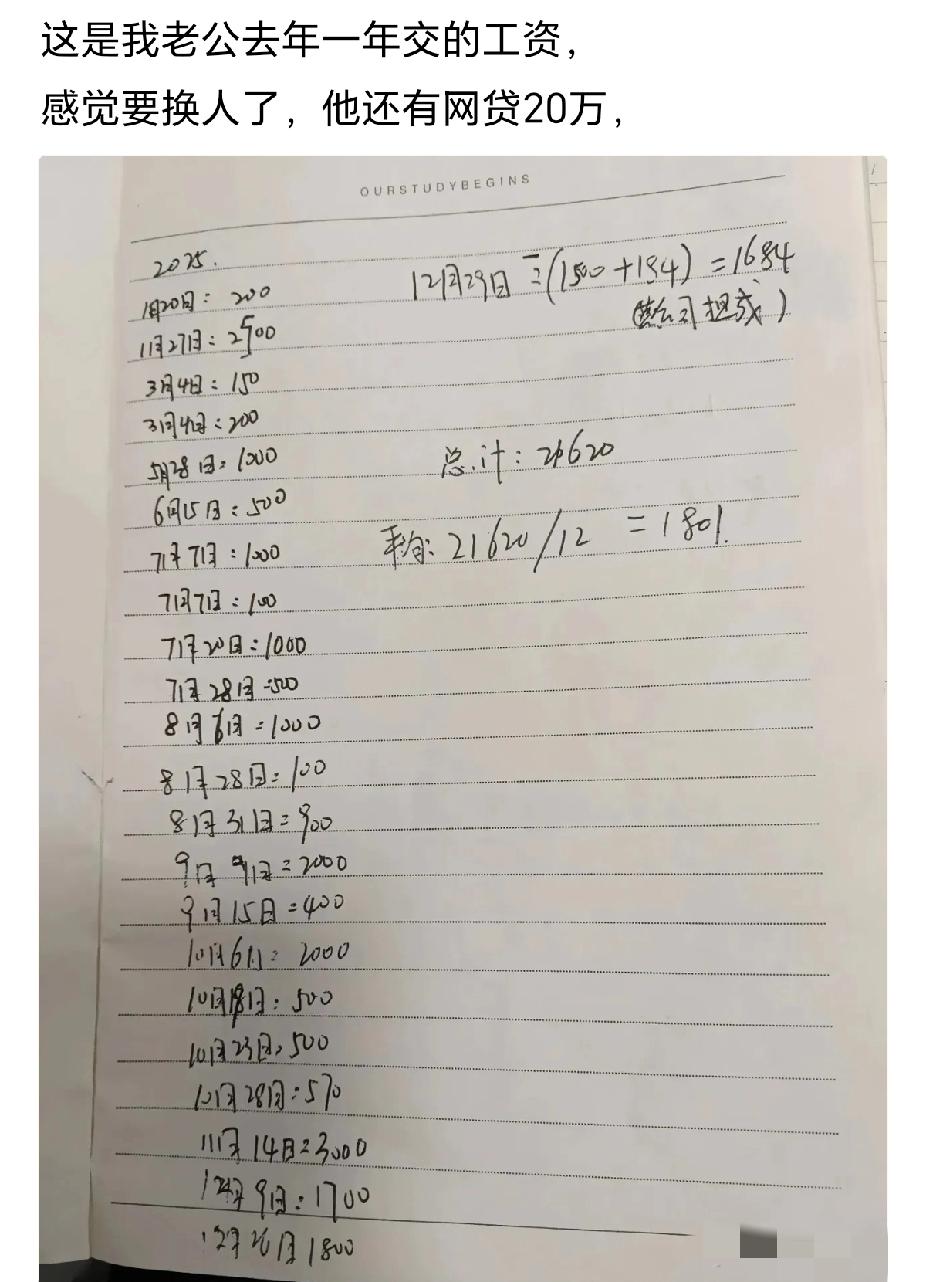 这是我老公去年一年交的工资，
感觉要换人了，他还有网贷20万，
OURSTUDYBEGINS
2025.
12月29日 =(1500+184) =1684
1月20日：200
11月27日：2500
3月4日：150
3月4日：200
5月28日：1000
总计：21620
6月15日：500
平均：21620/12 =1801.
7月7日：1000
7月7日：100
7月20日：1000
7月28日=500
8月6日=1000
8月28日=100
8月31日=900
9月9日=2000
9月15日=400
10月6日：2000
10月18日：500
10月23日：500
10月28日：570
11月14日=3000
12月9日：1700
12月26日1800